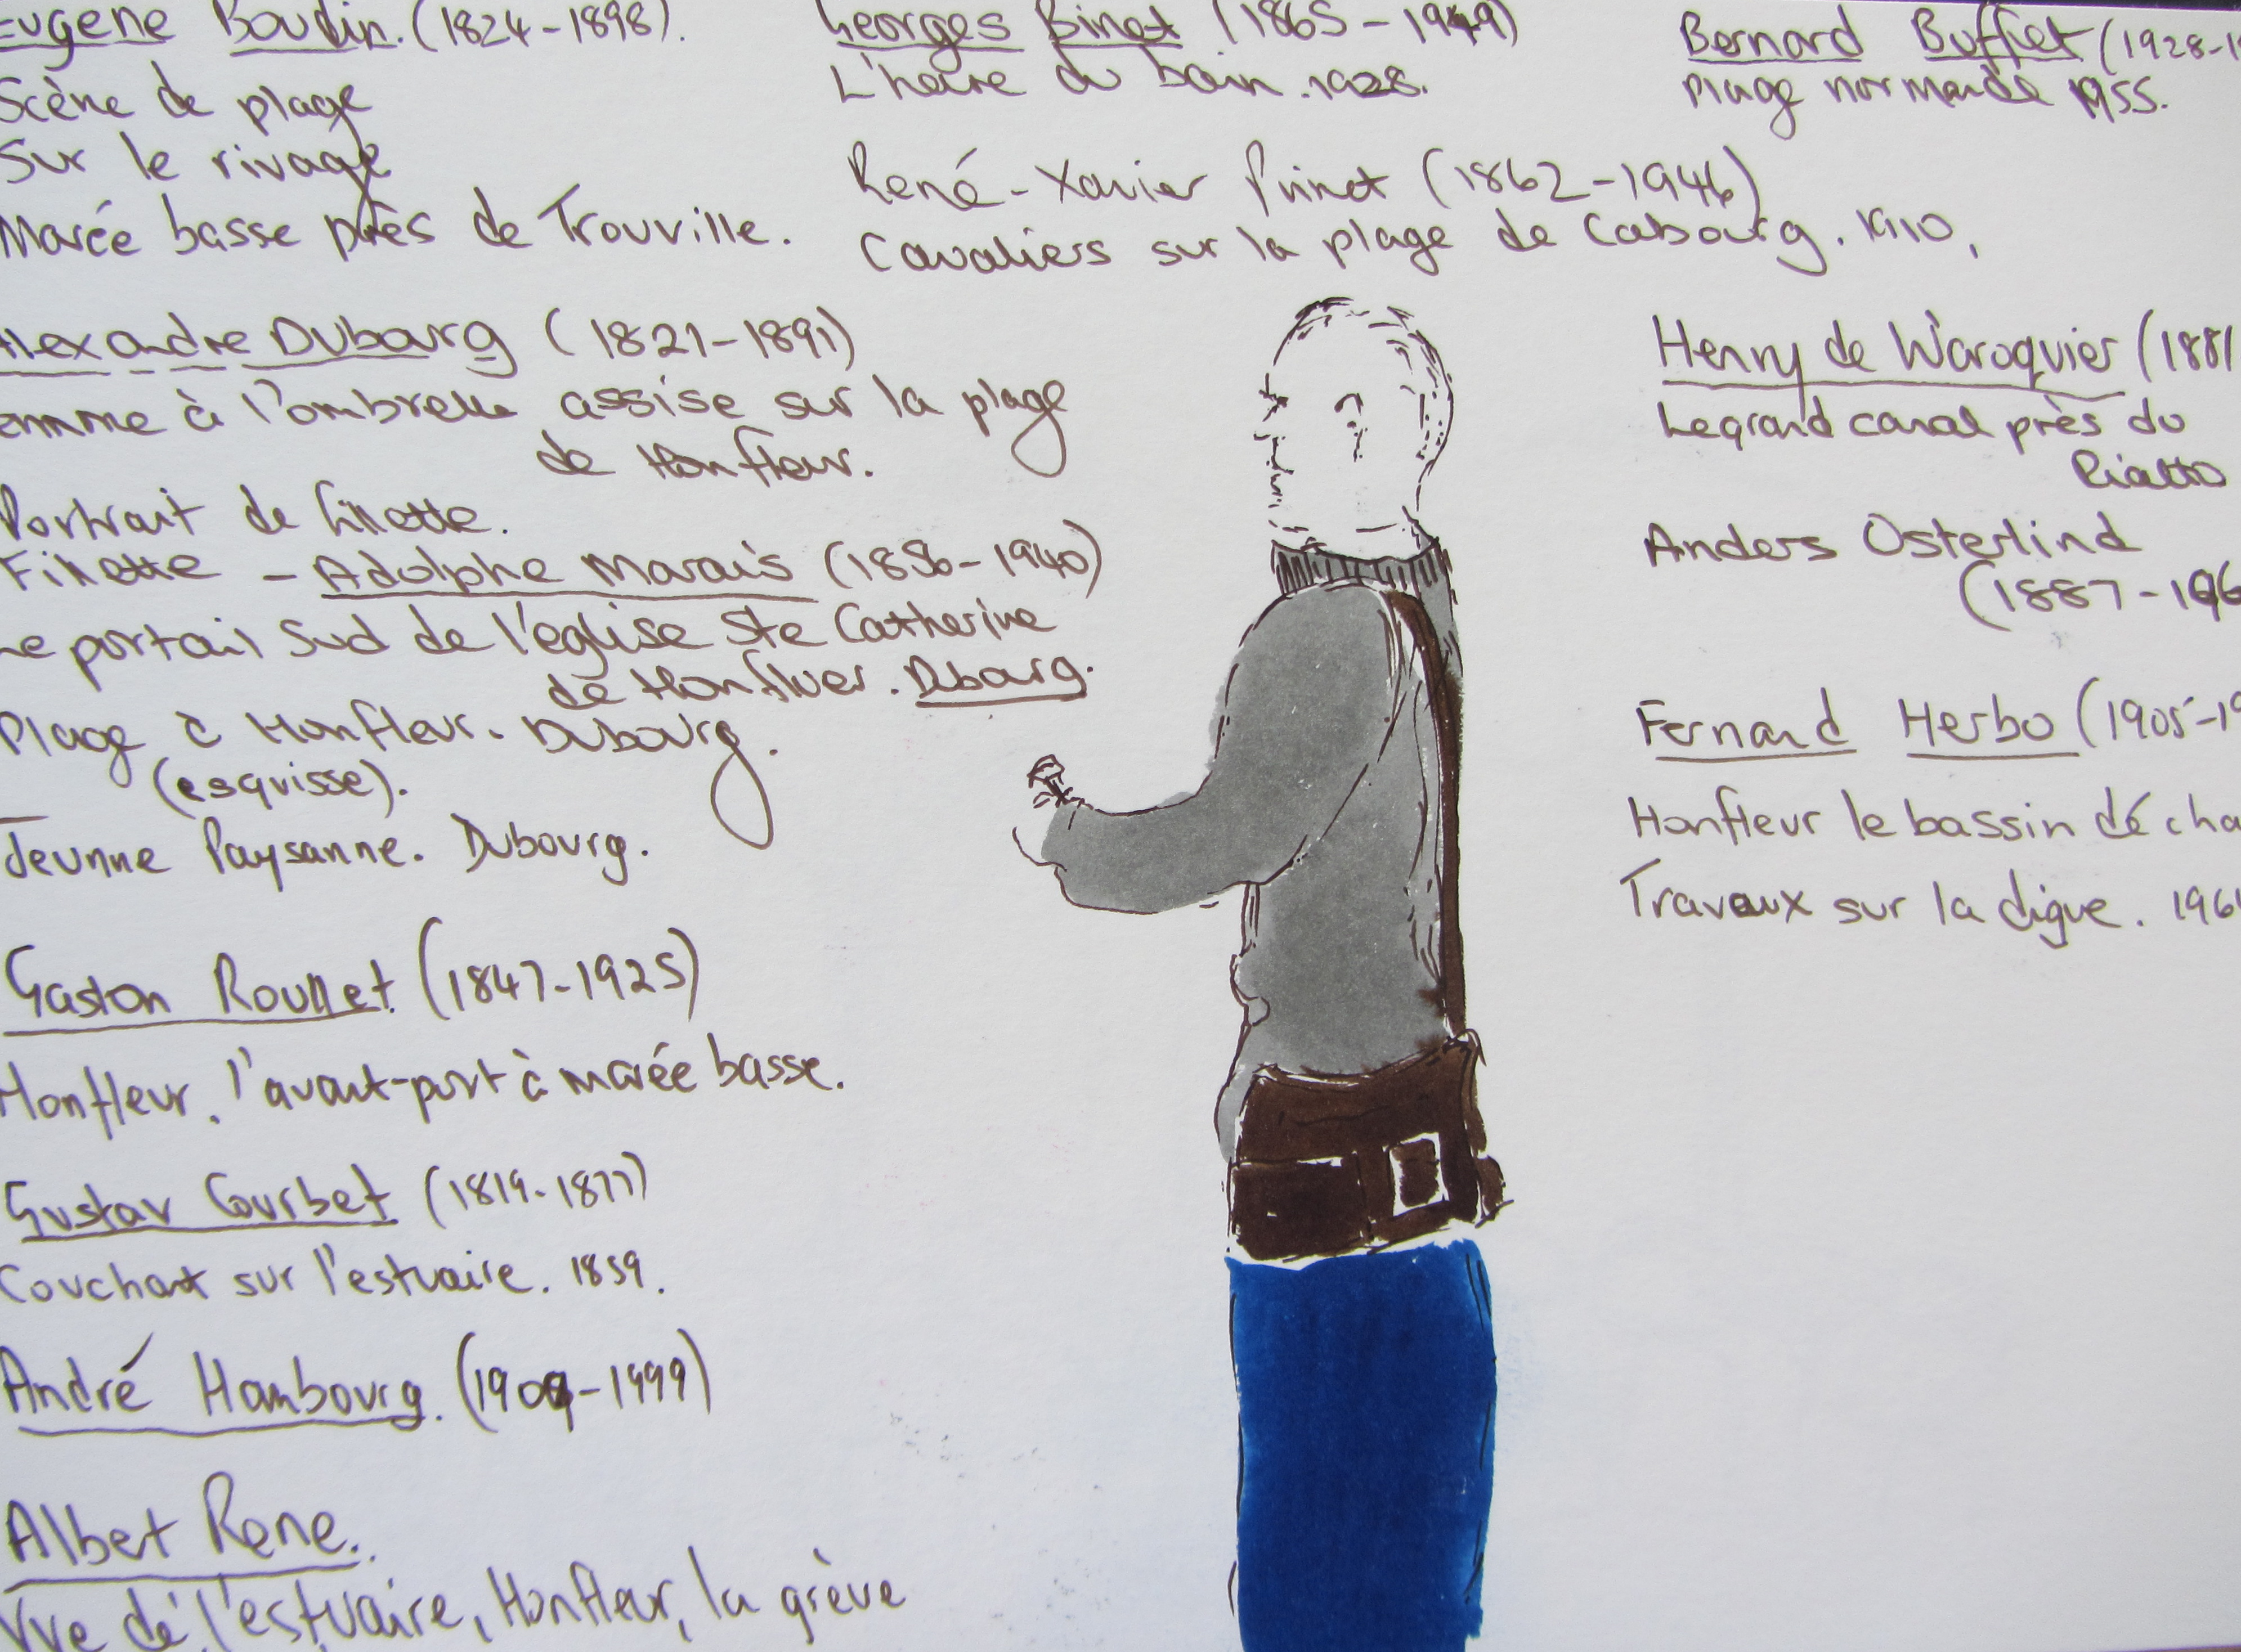 Eugene Boudin. (1824-1898).
Scène de plage
Sur le rivage
Marée basse près de Trouville.
Alexandre Dubourg (1821-1891)
emme à l'ombrelle assise sur la plage
de Honfleur.
Portrait de fillette.
Fillette - Adolphe Marais (1856-1940)
Le portail Sud de l'église Ste Catherine
de Honfluer. Dubourg.
Plage à Honfleur. Dubourg.
(esquisse).
Jeunne Paysanne. Dubourg.
Gaston Roullet (1847-1925)
Honfleur, l'avant-port à marée basse.
Gustav Courbet (1819-1877)
Couchant sur l'estuaire. 1859.
André Hambourg. (1909-1999)
Albert Rene.
Vue de l'estuaire, Honfleur, la grève
Georges Binet (1865-1949)
L'heure du bain. 1928.
René-Xavier Prinet (1862-1946)
Cavaliers sur la plage de Cabourg. 1910,
Bernard Buffet (1928-1
Plage normande 1955.
Henry de Waroquier (1881
Le grand canal près du
Rialto
Anders Osterlind
(1887-196
Fernand Herbo (1905-19
Honfleur le bassin dé cha
Travaux sur la digue. 196